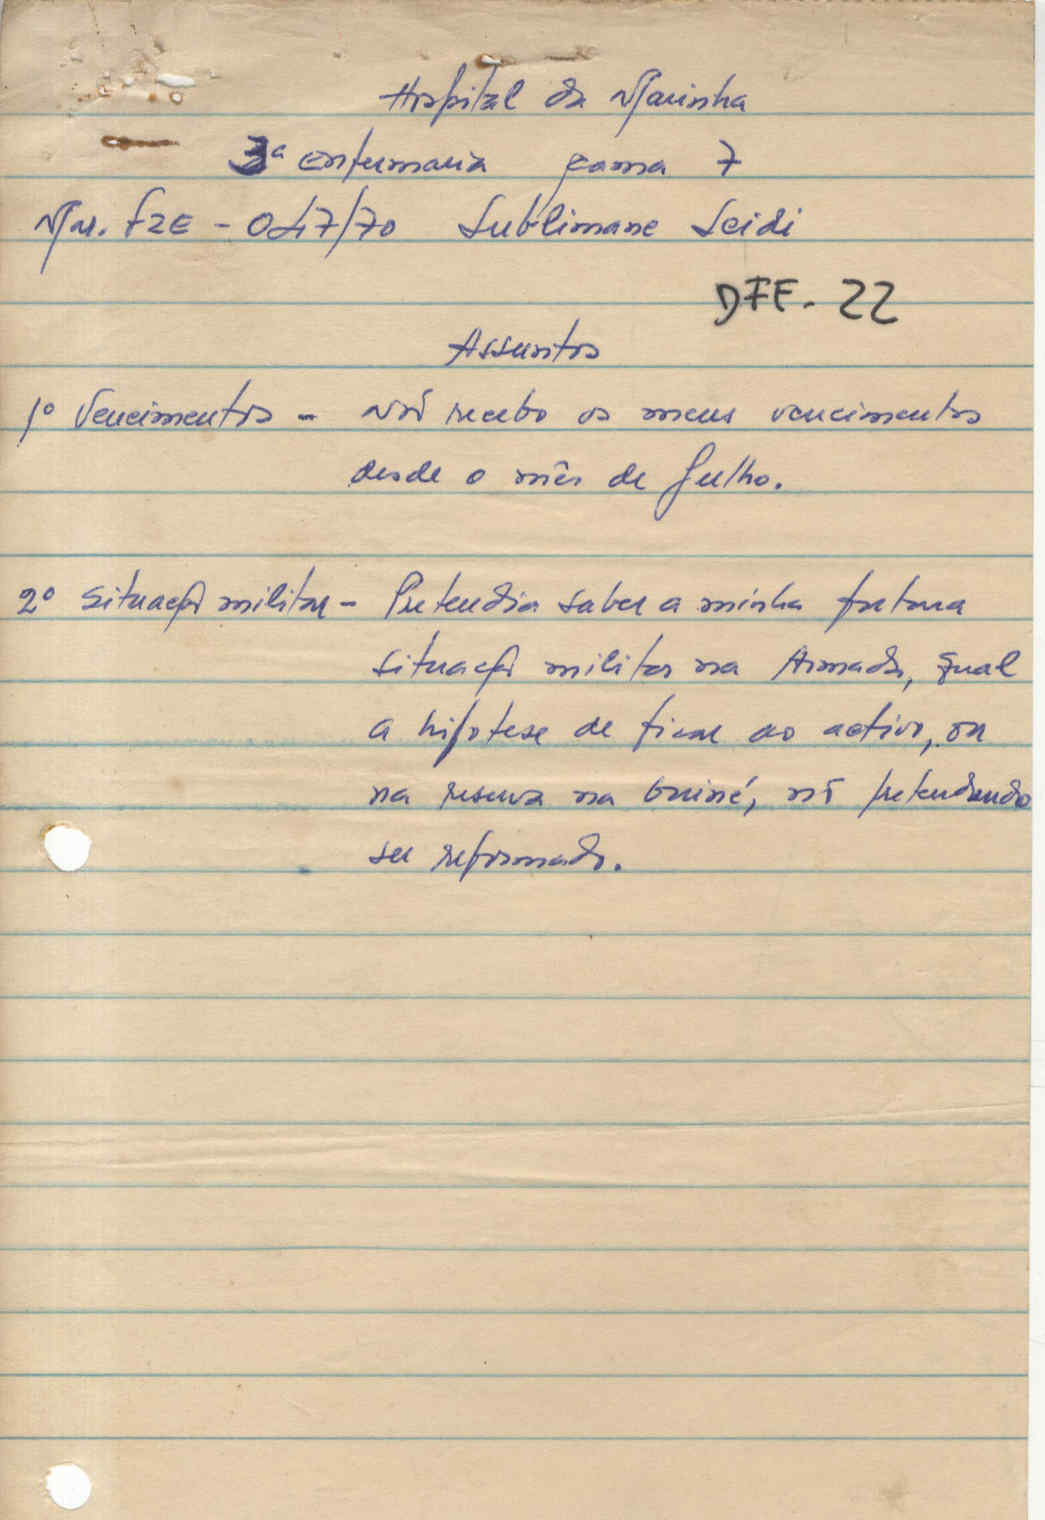 Hospital da Marinha
3ª enfermaria cama 7
Mar. FZE - 047/70 Sublimane Seidi
DFE - 22
Assuntos
1º Vencimentos - Não recebo os meus vencimentos
desde o mês de Julho.
2º Situação militar - Pretendia saber a minha futura
situação militar na Armada, qual
a hipotese de ficar ao activo, ou
na reserva na Guiné, não pretendendo
ser reformado.